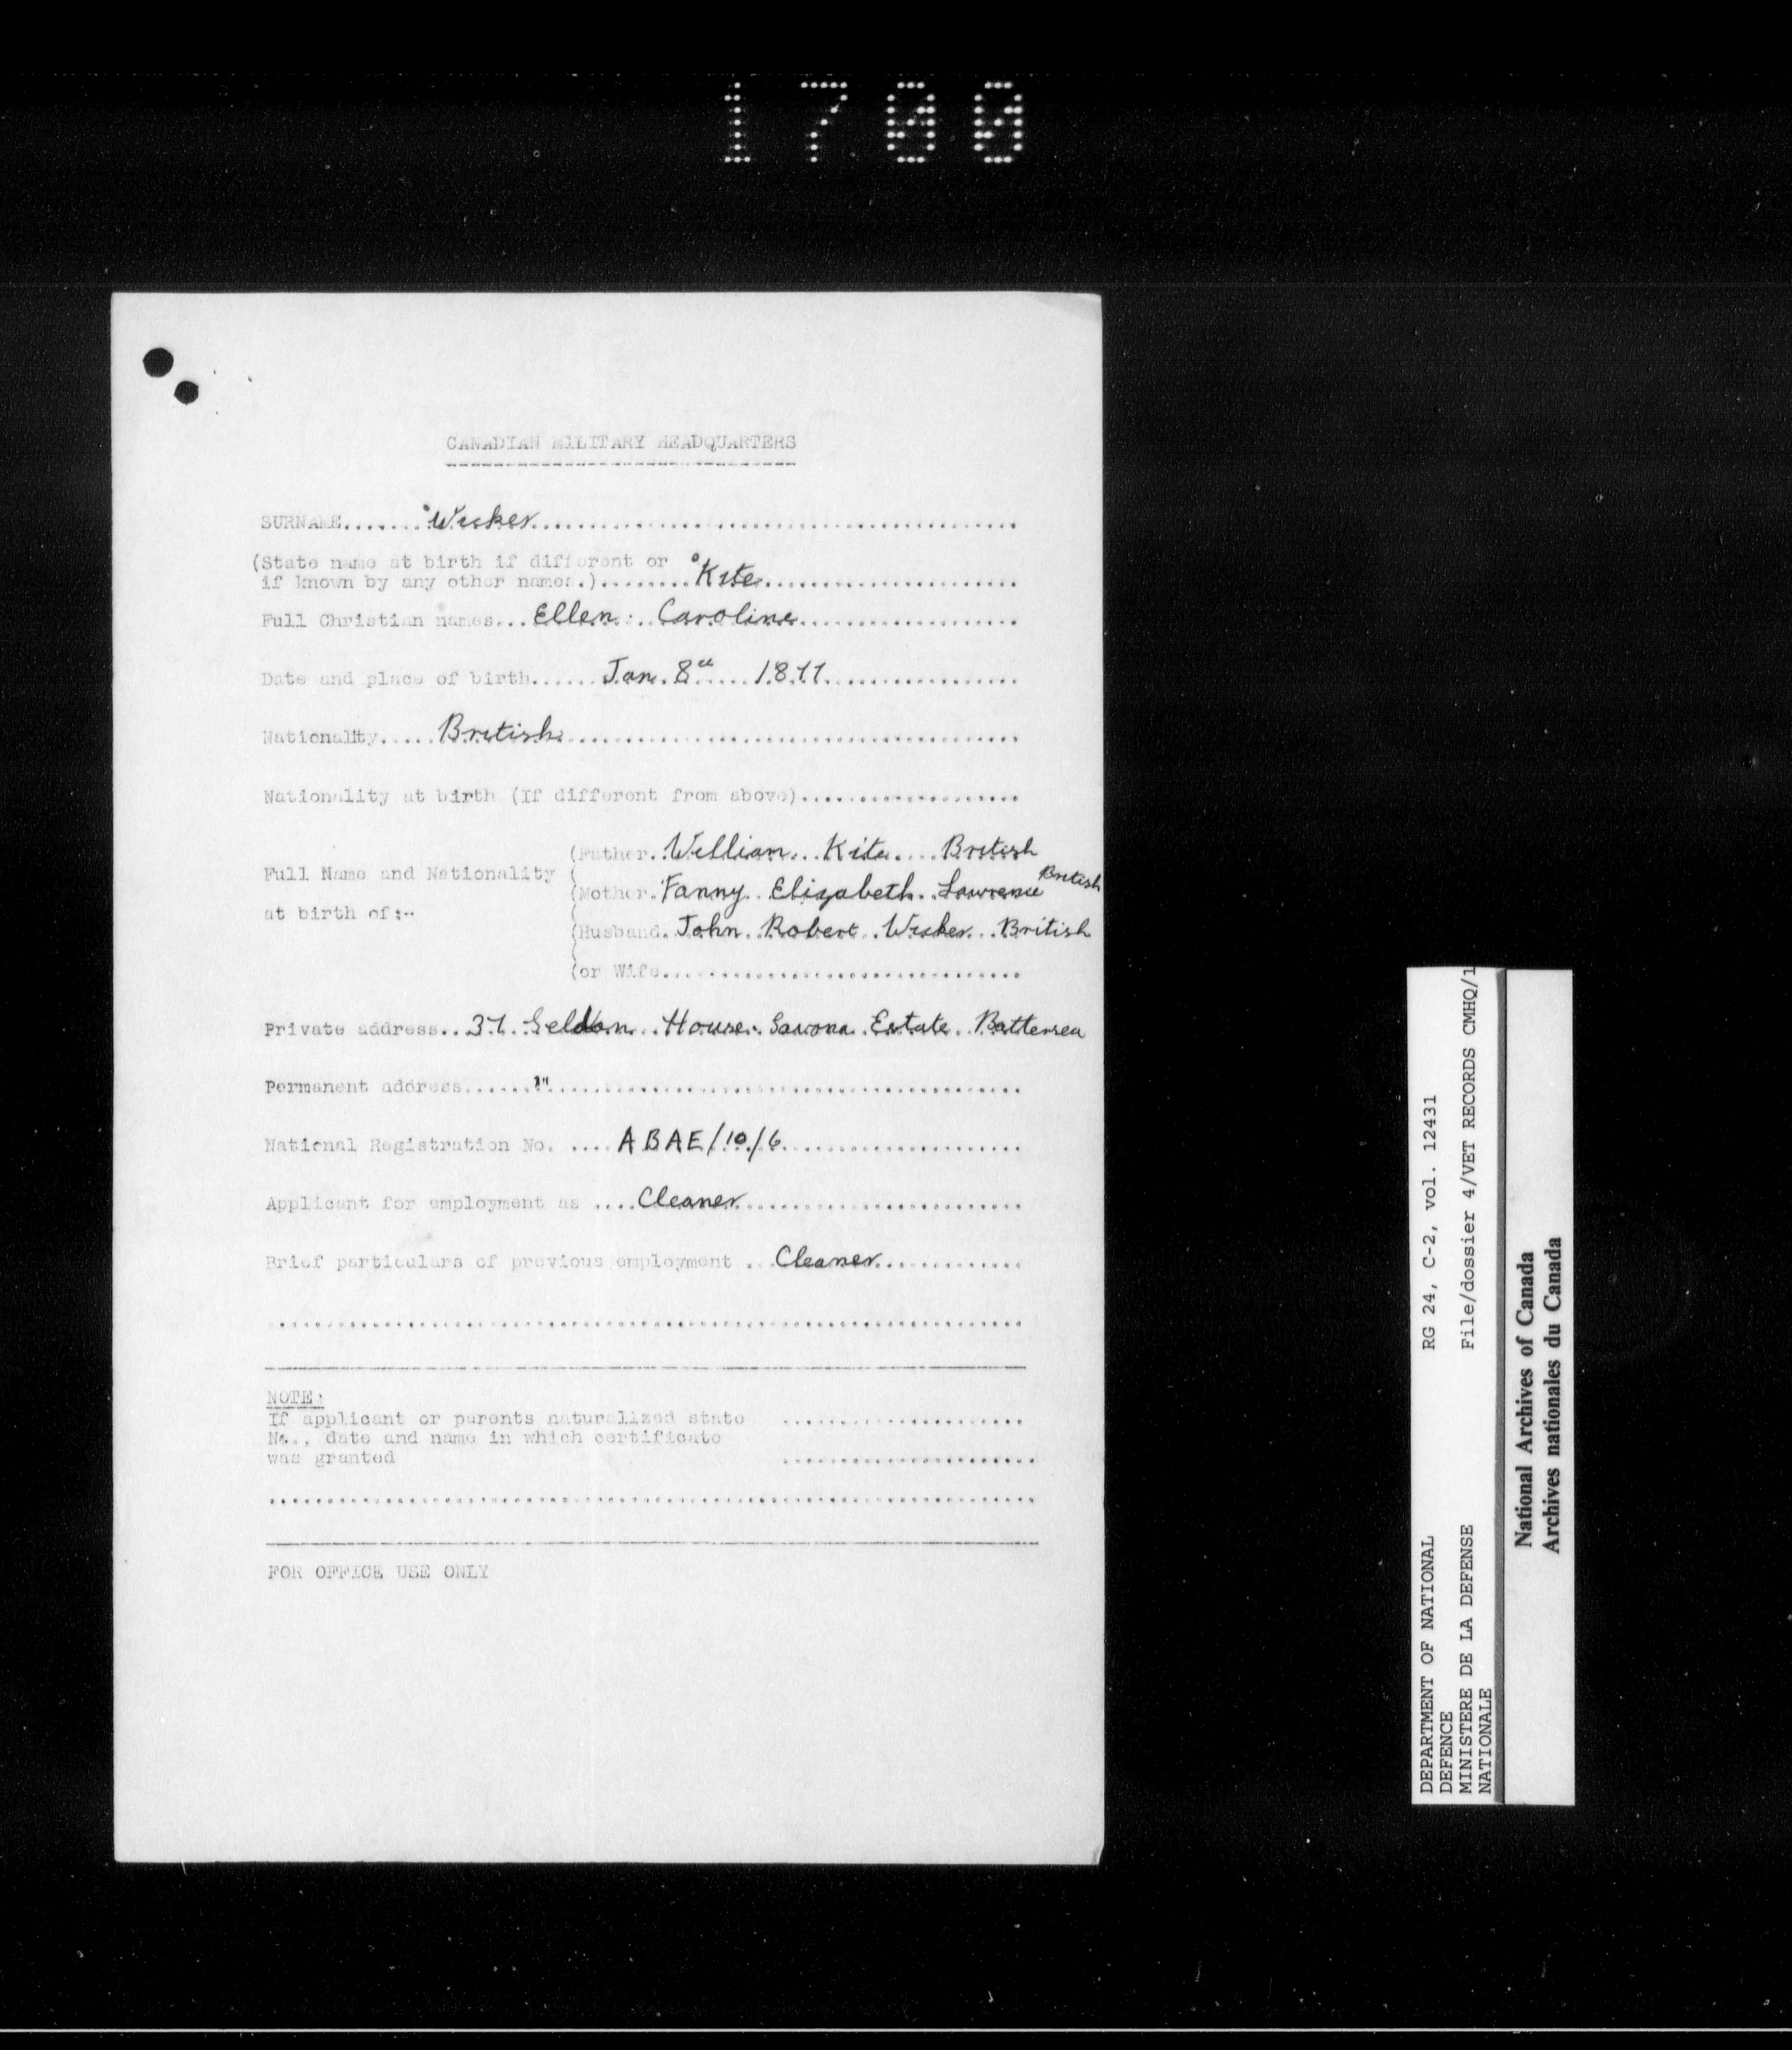 1700
CANADIAN MILITARY HEADQUARTERS
SURNAME.......Wicker
(State name at birth if different or
if known by any other names.)........Kite
Full Christian names...Ellen Caroline
Date and place of birth......Jan. 8th 1877
Nationality.....British
Nationality at birth (If different from above)
Full Name and Nationality
at birth of:-
(Father. William Kite British
(Mother. Fanny Elizabeth Lawrence British
(Husband. John Robert Wicker British
(or Wife
Private address..37 Geldon House Savona Estate Battersea
Permanent address......"
National Registration No. ....ABAE/10/6
Applicant for employment as ....Cleaner
Brief particulars of previous employment ...Cleaner
NOTE:
If applicant or parents naturalized state
No., date and name in which certificate
was granted
FOR OFFICE USE ONLY
DEPARTMENT OF NATIONAL
DEFENCE
MINISTERE DE LA DEFENSE
NATIONALE
RG 24, C-2, vol. 12431
File/dossier 4/VET RECORDS CMHQ/1
National Archives of Canada
Archives nationales du Canada